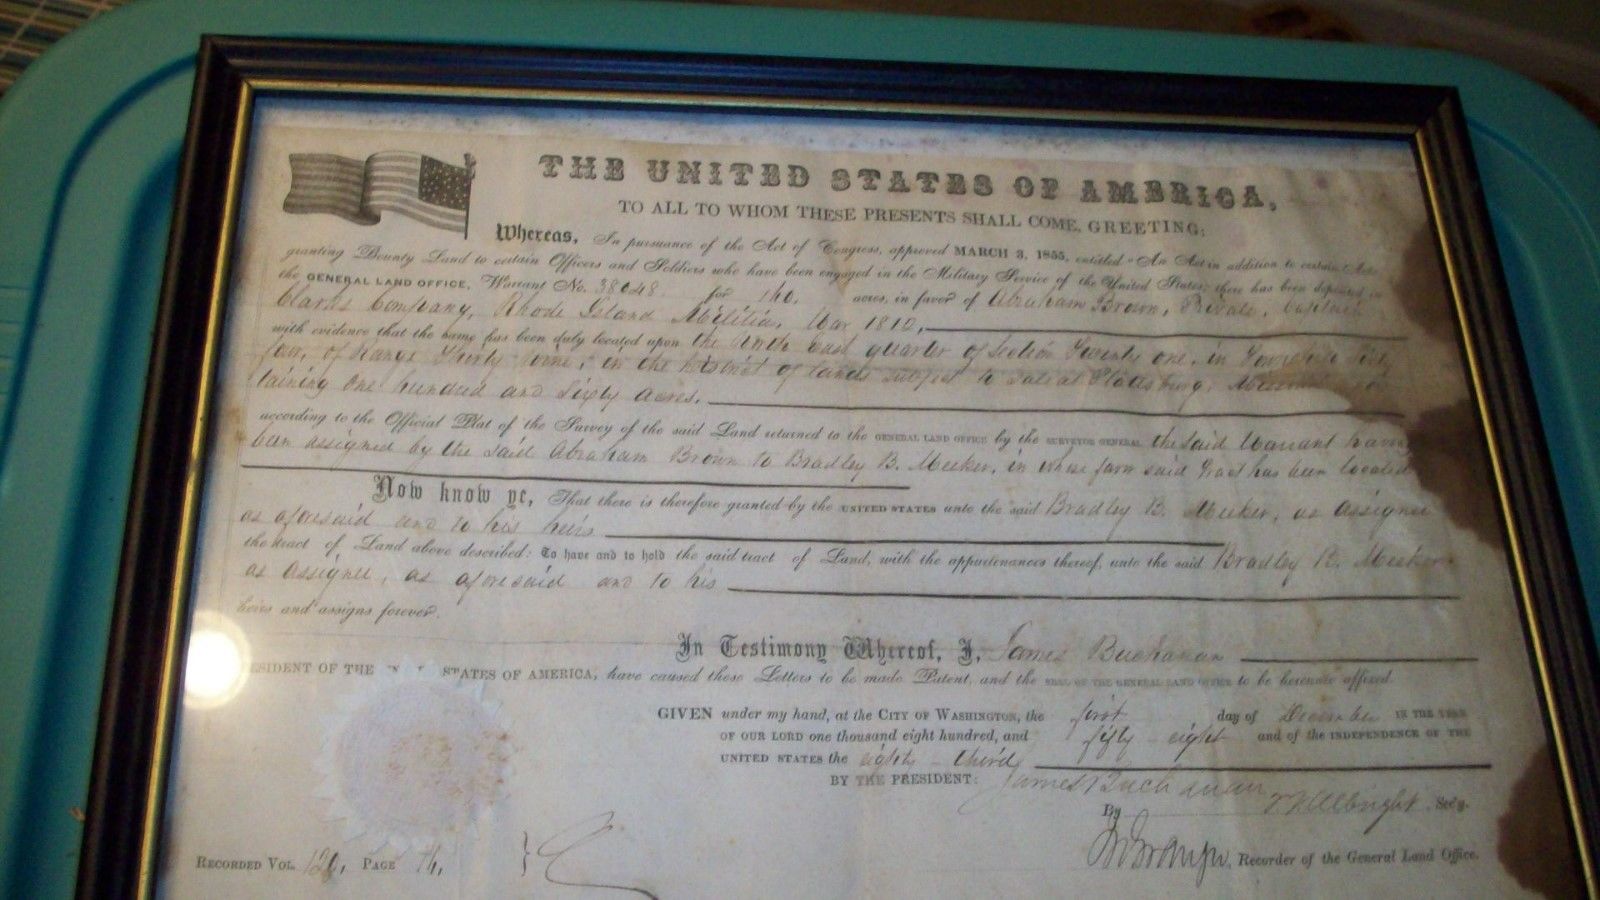 THE UNITED STATES OF AMERICA,
TO ALL TO WHOM THESE PRESENTS SHALL COME, GREETING:
Whereas, In pursuance of the Act of Congress, approved MARCH 3, 1855, entitled "An Act in addition to certain Acts
granting Bounty Land to certain Officers and Soldiers who have been engaged in the Military Service of the United States, there has been deposited in
the GENERAL LAND OFFICE, Warrant No. 38048 for 160. acres, in favor of Abraham Brown, Private, Captain
Clarks Company, Rhode Island Militia, War 1812,
with evidence that the same has been duly located upon the North East quarter of Section Twenty one, in Township Sixty
four, of Range Thirty nine, in the District of Lands subject to Sale at Plattsburg, Missouri
taining One hundred and Sixty Acres,
according to the Official Plat of the Survey of the said Land returned to the GENERAL LAND OFFICE by the SURVEYOR GENERAL the said Warrant having
been assigned by the said Abraham Brown to Bradley B. Meeker, in whose favor said Tract has been located
Now know ye, That there is therefore granted by the UNITED STATES unto the said Bradley B. Meeker, as Assignee
as aforesaid and to his heirs
the tract of Land above described: To have and to hold the said tract of Land, with the appurtenances thereof, unto the said Bradley B. Meeker
as Assignee, as aforesaid and to his
heirs and assigns forever.
In Testimony Whereof, I, James Buchanan
ESIDENT OF THE STATES OF AMERICA, have caused these Letters to be made Patent, and the SEAL OF THE GENERAL LAND OFFICE to be hereunto affixed.
GIVEN under my hand, at the CITY OF WASHINGTON, the first day of December IN THE YEAR
OF OUR LORD one thousand eight hundred, and fifty-eight and of the INDEPENDENCE OF THE
UNITED STATES the eighty-third
BY THE PRESIDENT: James Buchanan
By Albright Sec'y.
Recorder of the General Land Office.
RECORDED VOL. 120, PAGE